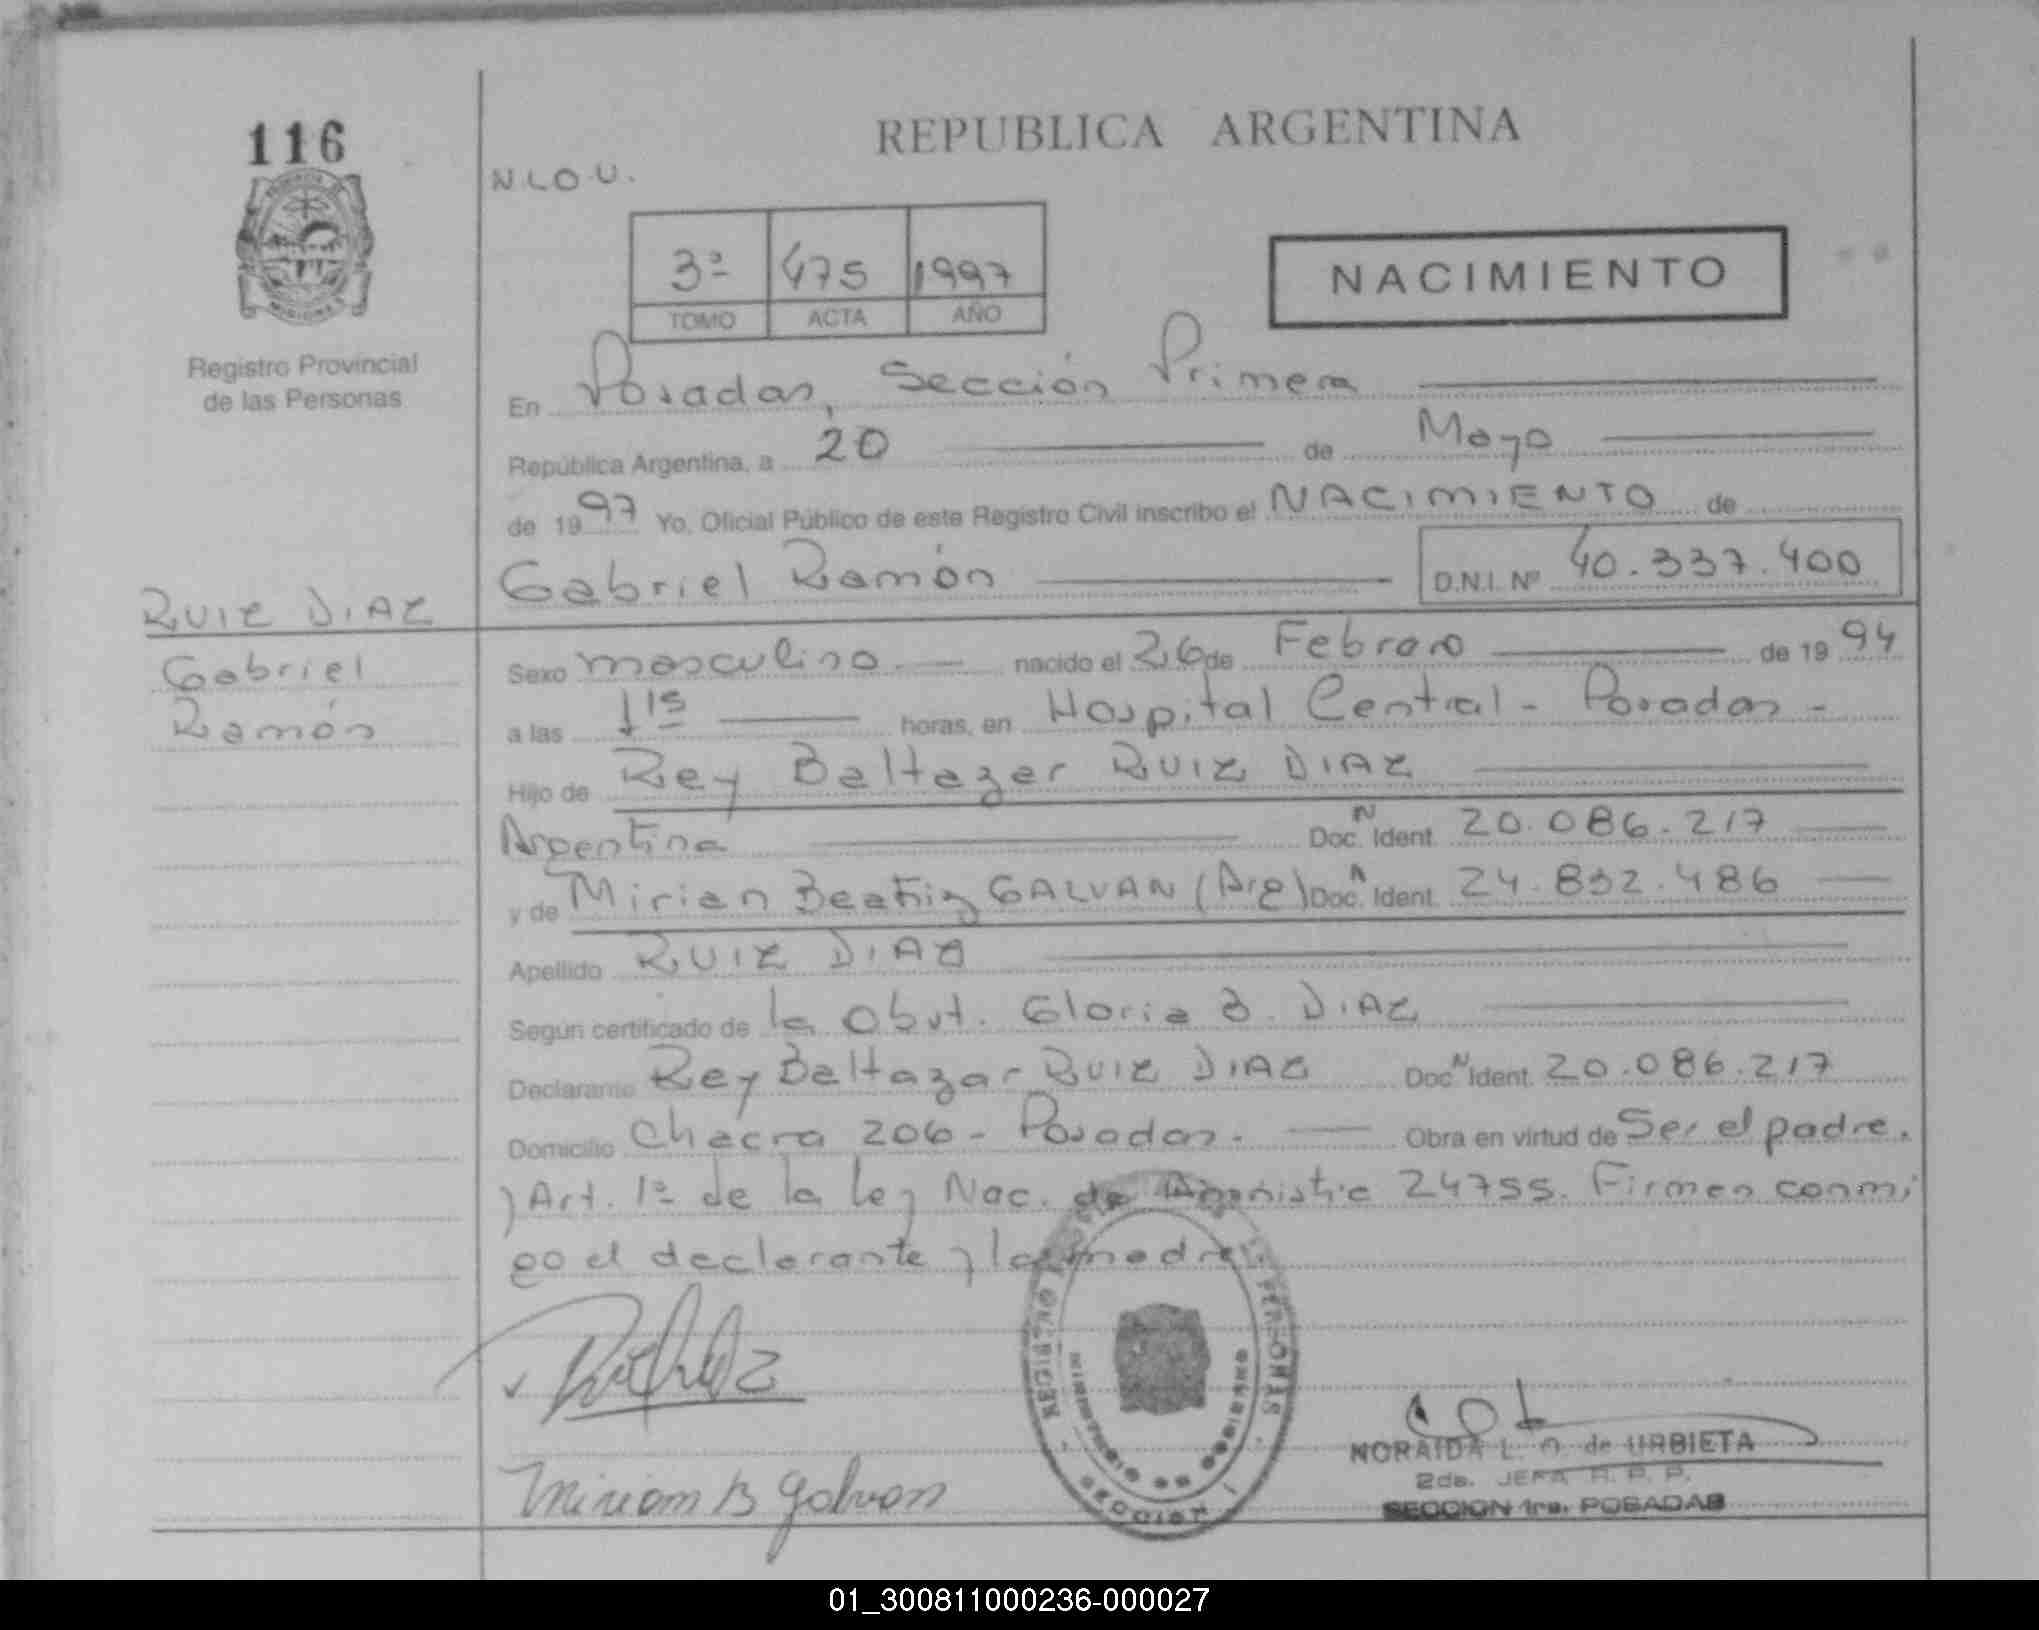 116
REPUBLICA ARGENTINA
N.L.O.U.
3ª 475 1997
TOMO ACTA AÑO
NACIMIENTO
Registro Provincial
de las Personas
En Posadas, Sección Primera
República Argentina, a 20 de Mayo
de 1997 Yo, Oficial Público de este Registro Civil inscribo el NACIMIENTO de
Gabriel Ramón D.N.I. Nº 40.337.400
RUIZ DIAZ
Gabriel
Ramón
Sexo masculino nacido el 26 de Febrero de 1994
a las 1 15 horas, en Hospital Central - Posadas -
Hijo de Rey Baltazar RUIZ DIAZ
Argentina Doc. N Ident. 20.086.217
y de Mirian Beatriz GALVAN (Arg) Doc. Ident. 24.832.486
Apellido RUIZ DIAZ
Según certificado de la Obst. Gloria B. DIAZ
Declarante Rey Baltazar RUIZ DIAZ Doc. N Ident. 20.086.217
Domicilio Chacra 206 - Posadas. Obra en virtud de Ser el padre.
y Art. 1º de la Ley Nac. de Amnistia 24755. Firman conmi
go el declarante y la madre
REGISTRO PERSONAS
MINISTERIO DE GOBIERNO
SECCION 1
Miriam B Galvan
NORAIDA L. de URBIETA
2da. JEFA R. P. P.
SECCION 1ra. POSADAS
01_300811000236-000027